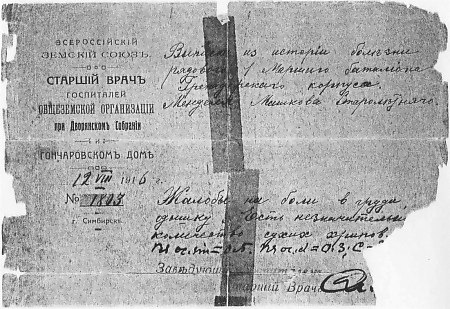 ВСЕРОССІЙСКІЙ
ЗЕМСКІЙ СОЮЗЪ
СТАРШІЙ ВРАЧЪ
ГОСПИТАЛЕЙ
ОБЩЕЗЕМСКОЙ ОРГАНИЗАЦІИ
при Дворянскомъ Собраніи
и
ГОНЧАРОВСКОМЪ ДОМѢ
12 VIII 1916 г.
№ 1823
г. Симбирскъ.
Выписка изъ исторіи болѣзни
рядового 1 Маршего баталіона
корпуса
Мешкова
Жалобы на боли в груди,
одышку. Есть незначительн
количество сухих хрипов.
Завѣдующій
Старшій Врачъ